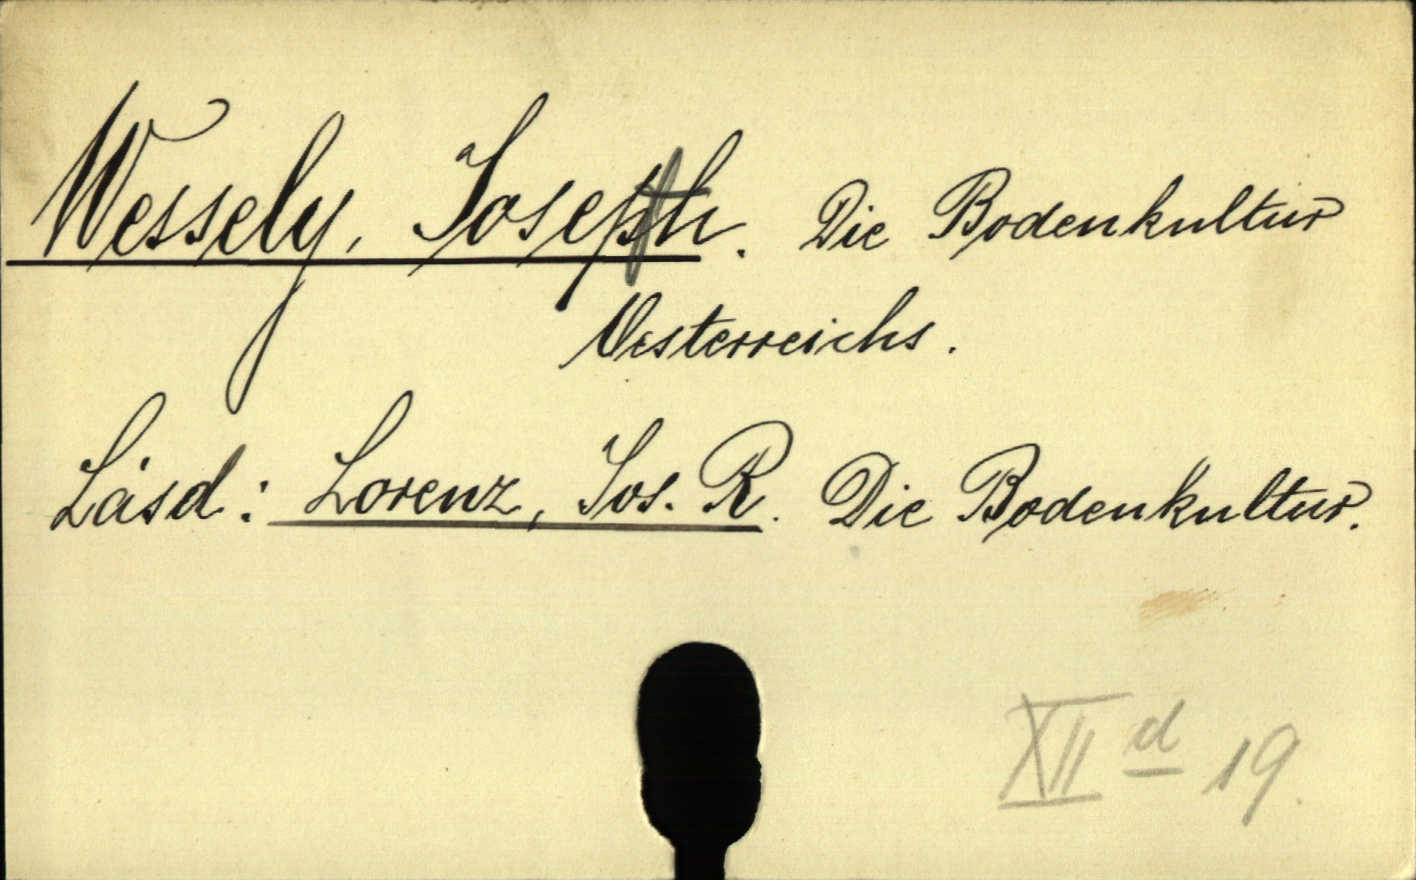 Wessely, Joseph. Die Bodenkultur
Oesterreichs.
Lásd: Lorenz, Jos. R. Die Bodenkultur.
XII d 19.